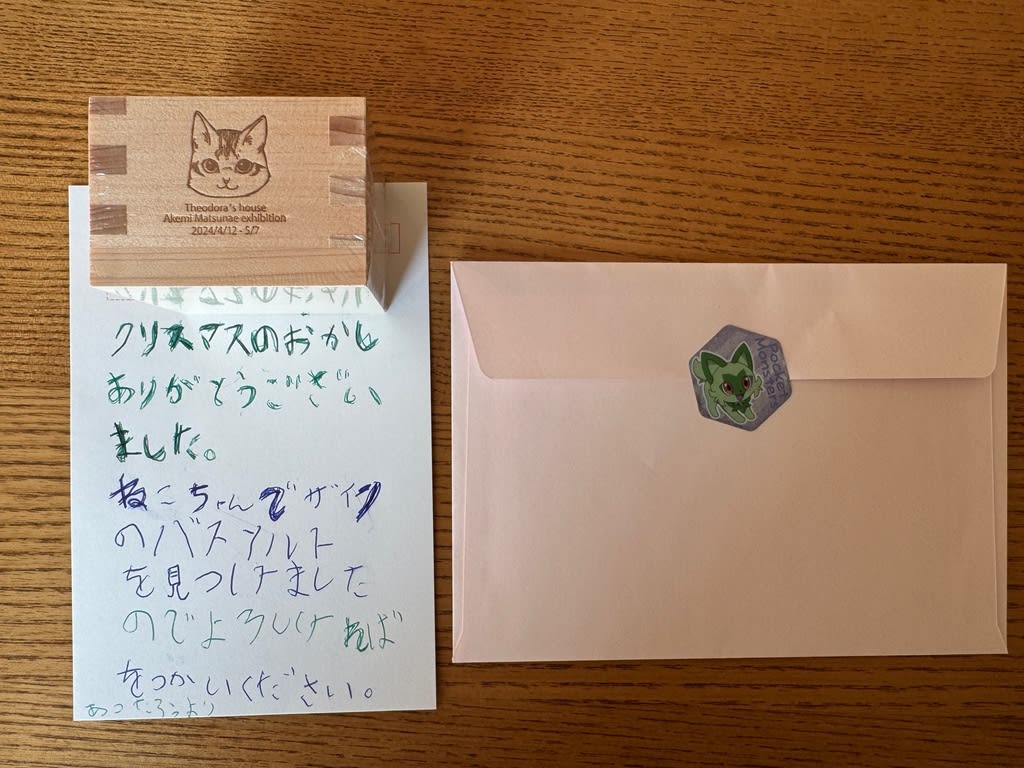 Theodora's house
Akemi Matsunae exhibition
2024/4/12 - 5/7
クリスマスのおかし
ありがとうござい
ました。
ねこちゃんでザイン
のバスソルト
を見つけました
のでよろしければ
をつかいください。
あつたろうより
Pocket
Monsters